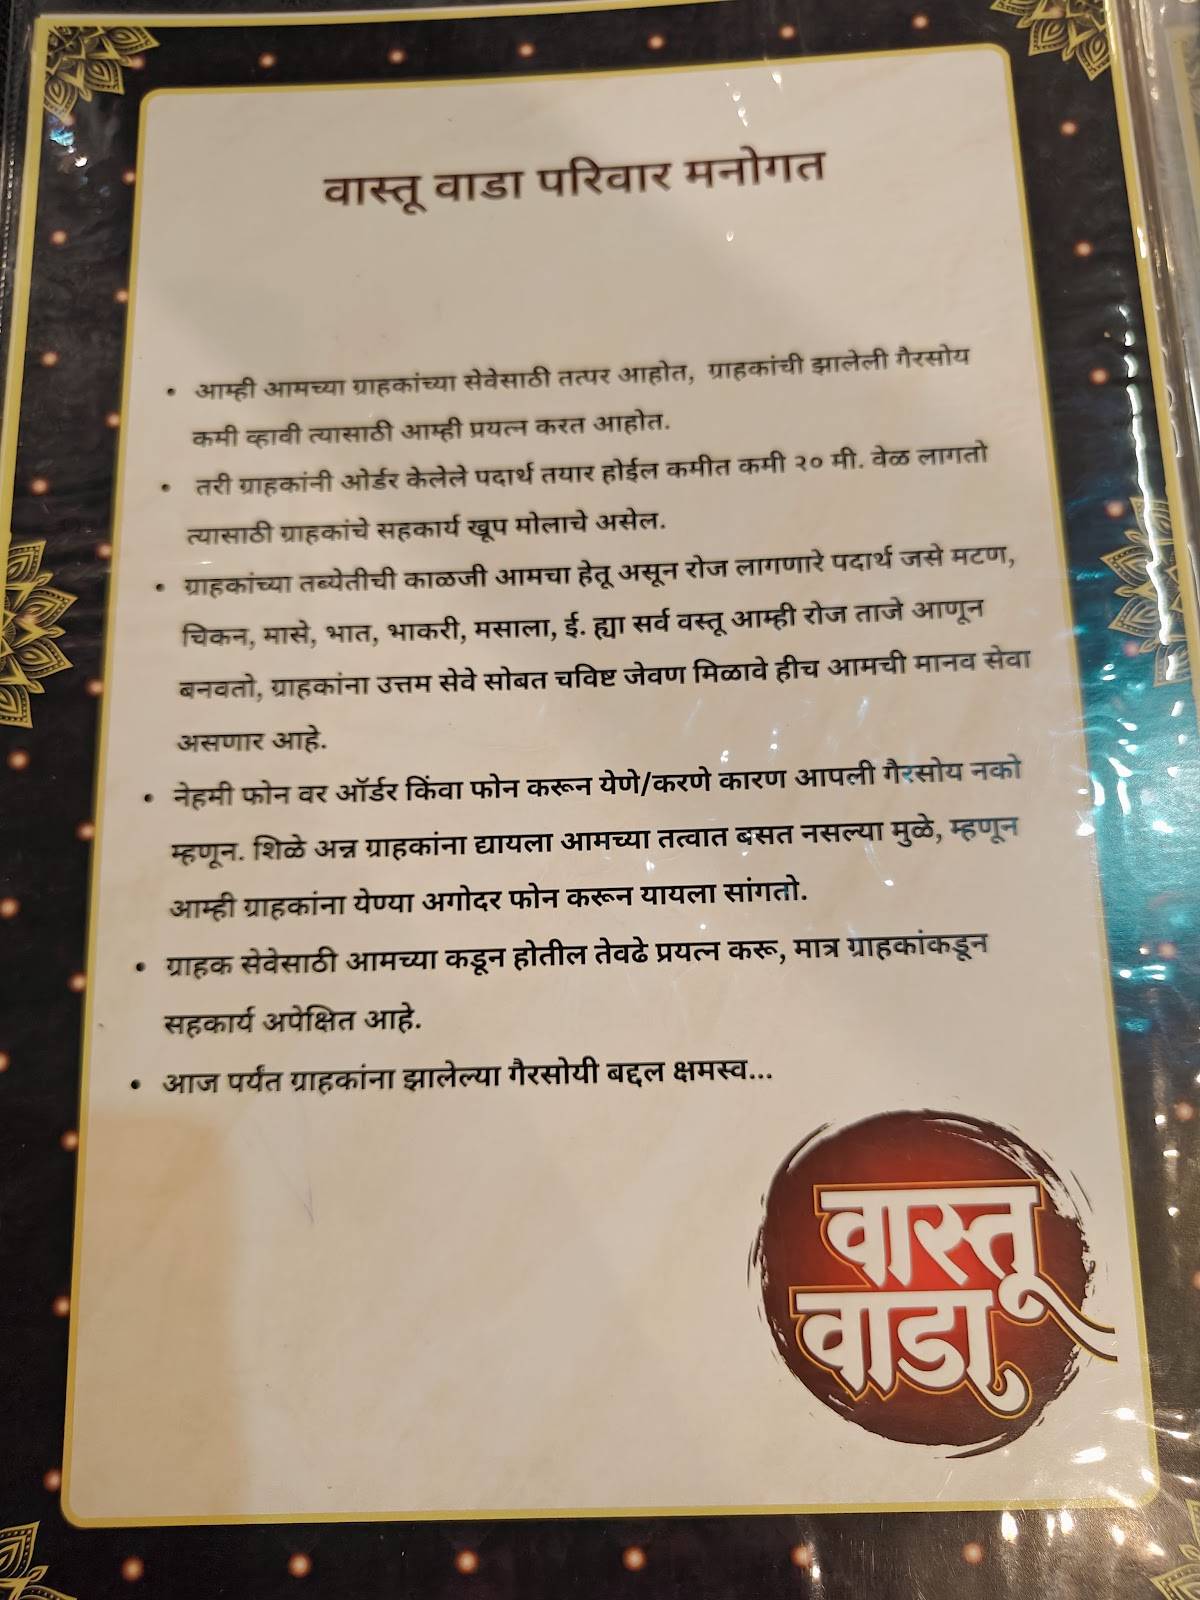 वास्तू वाडा परिवार मनोगत
• आम्ही आमच्या ग्राहकांच्या सेवेसाठी तत्पर आहोत, ग्राहकांची झालेली गैरसोय
कमी व्हावी त्यासाठी आम्ही प्रयत्न करत आहोत.
• तरी ग्राहकांनी ओर्डर केलेले पदार्थ तयार होईल कमीत कमी २० मी. वेळ लागतो
त्यासाठी ग्राहकांचे सहकार्य खूप मोलाचे असेल.
• ग्राहकांच्या तब्येतीची काळजी आमचा हेतू असून रोज लागणारे पदार्थ जसे मटण,
चिकन, मासे, भात, भाकरी, मसाला, ई. ह्या सर्व वस्तू आम्ही रोज ताजे आणून
बनवतो, ग्राहकांना उत्तम सेवे सोबत चविष्ट जेवण मिळावे हीच आमची मानव सेवा
असणार आहे.
• नेहमी फोन वर ऑर्डर किंवा फोन करून येणे/करणे कारण आपली गैरसोय नको
म्हणून. शिळे अन्न ग्राहकांना द्यायला आमच्या तत्वात बसत नसल्या मुळे, म्हणून
आम्ही ग्राहकांना येण्या अगोदर फोन करून यायला सांगतो.
• ग्राहक सेवेसाठी आमच्या कडून होतील तेवढे प्रयत्न करू, मात्र ग्राहकांकडून
सहकार्य अपेक्षित आहे.
• आज पर्यंत ग्राहकांना झालेल्या गैरसोयी बद्दल क्षमस्व...
वास्तू
वाडा